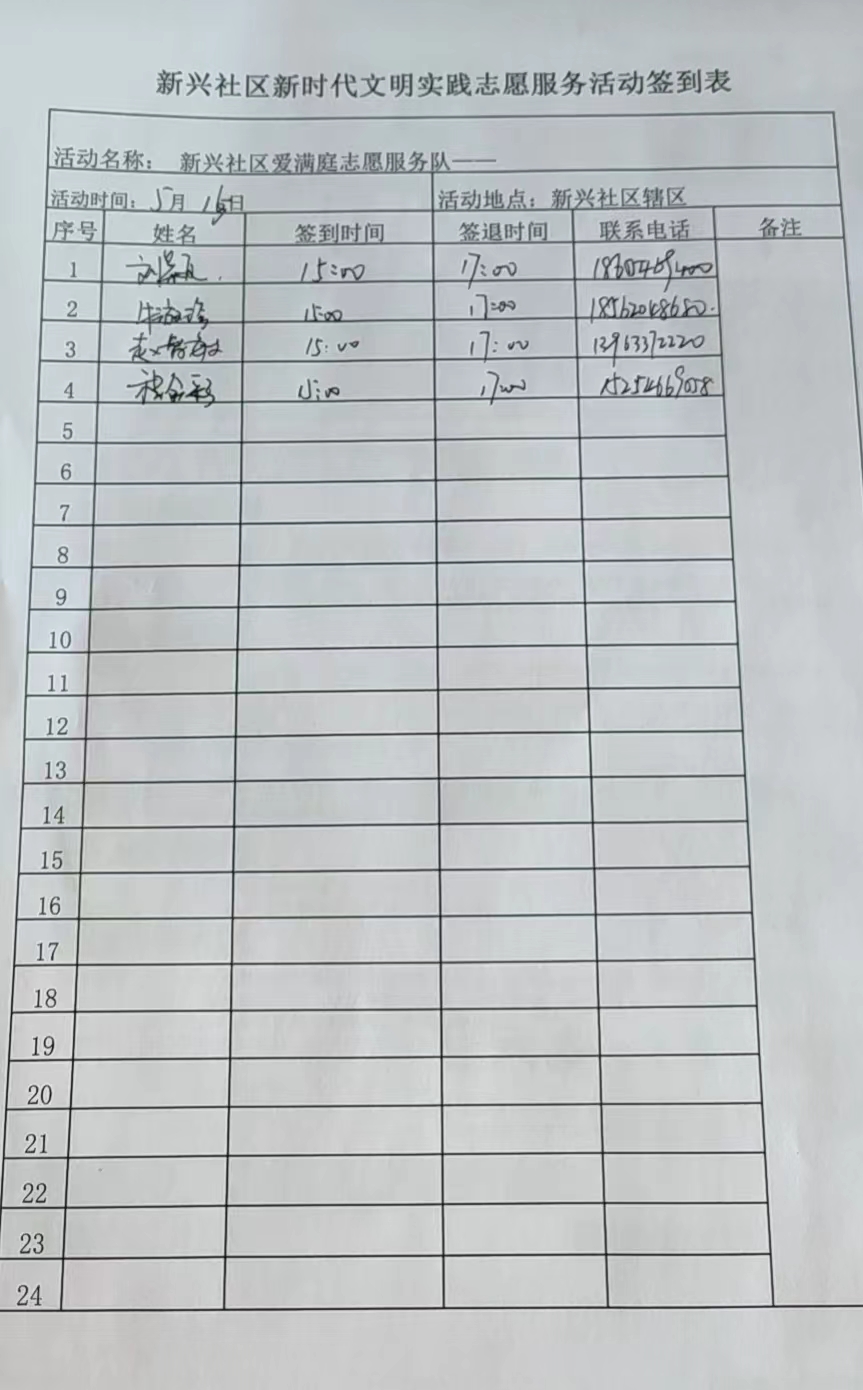 新兴社区新时代文明实践志愿服务活动签到表
活动名称： 新兴社区爱满庭志愿服务队——
活动时间：5月16日 活动地点：新兴社区辖区
序号 姓名 签到时间 签退时间 联系电话 备注
1 15:00 17:00
2 15:00 17:00 18562048680.
3 15:00 17:00 13963372220
4 15:00 17:00 15254669058
5
6
7
8
9
10
11
12
13
14
15
16
17
18
19
20
21
22
23
24